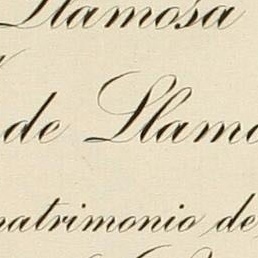 Llamosa
de Llamo
matrimonio de